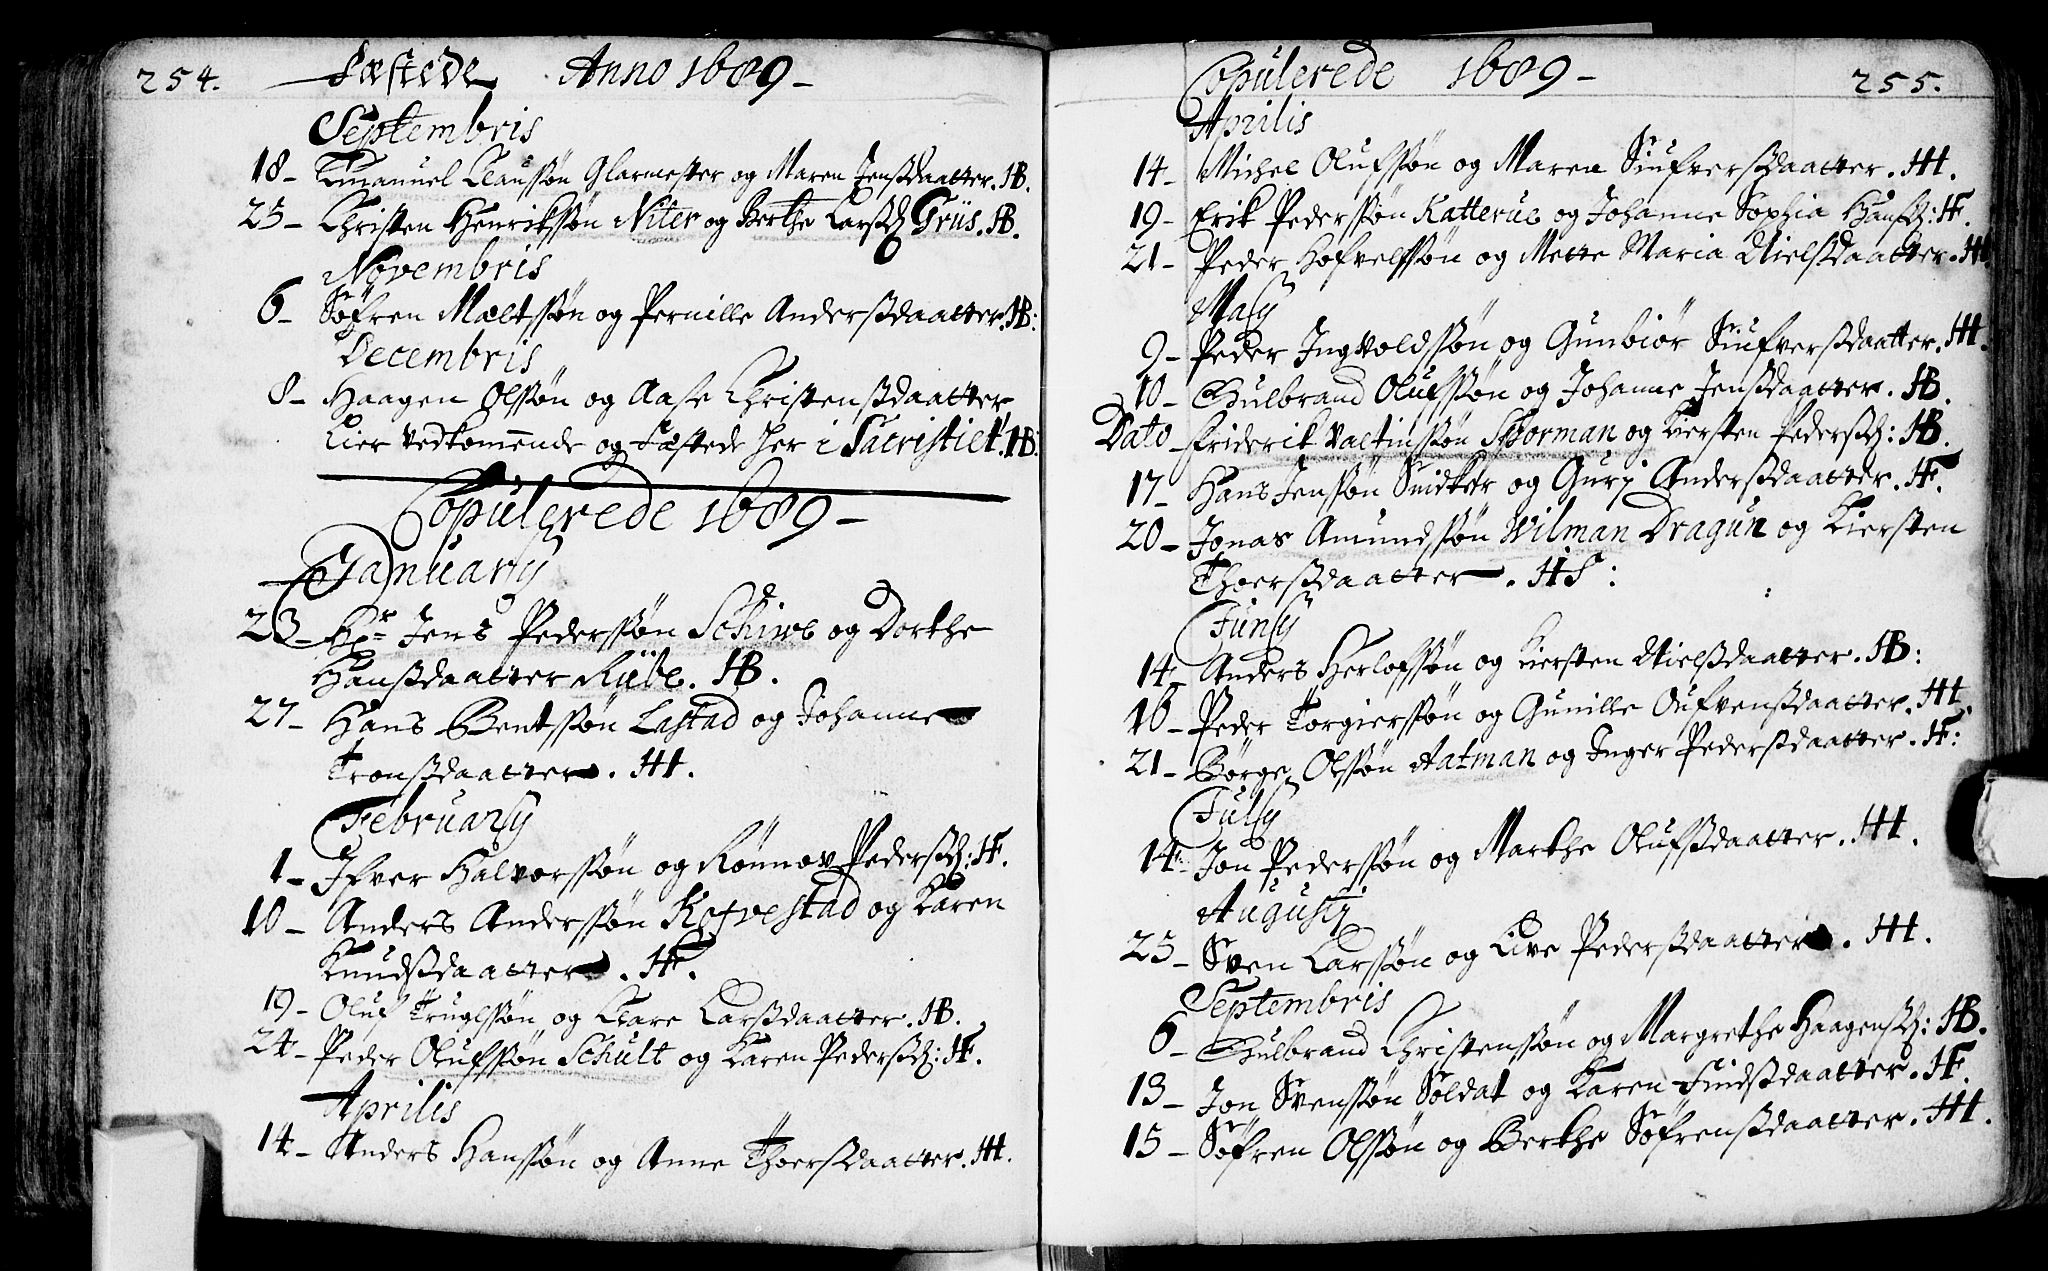 254. Fæstede Anno 1689 –
Septembris
18 – Emanuel Claussøn Glarmester og Maren Jensdaatter. HB.
25 – Christen Henrikssøn Niter og Berthe Larsd: Griis. HB.
Novembris
6 – Søfren Mæltssøn og Pernille Andersdaatter. HB:
Decembris
8 – Haagen Olssøn og Aase Christensdaatter
Lier vedkom̄ende og Fæstede her i Sacristiet. HB:
Copulerede 1689 –
January
23 – Hr Jens Pederssøn Schive og Dorthe
Hansdaatter Riibe. HB.
27 – Hans Bentssøn Lastad og Johanne
Tronsdaatter. HH.
February
1 – Ifver Halvorssøn og Rønnov Pedersd: HF.
10 – Anders Anderssøn Refvestad og Karen
Knudsdaatter. HF.
19 – Oluf Trugelssøn og Clare Larsdaatter. HB.
24 – Peder Olufssøn Schult og Karen Pedersd: HF.
Aprilis
14 – Anders Hanssøn og Anne Thoersdaatter. HH.
Copulerede 1689 – 255.
Aprilis
14 – Michel Olufssøn og Maren Siufversdaatter. HH.
19 – Erik Pederssøn Katterue og Johanne Sophia Hansd: HF.
21 – Peder Hofvelssøn og Mette Maria Nielsdaatter. HH.
Maij
9 – Peder Ingvoldssøn og Gunbiør Siufversdaatter. HH.
10 – Gulbrand Olufssøn og Johanne Jensdaatter. HB.
Dato – Friderik Valtinssøn Schorman og Kiersten Pedersd: HB.
17 – Hans Jenssøn Snidker og Gurj Andersdaatter. HF.
20 – Jonas Amundssøn Wilman Dragun og Kiersten
Thoersdaatter. HS:
Junij
14 – Anders Herlofssøn og Kiersten Nielsdaatter. HB:
16 – Peder Torgierssøn og Gunille Oufvensdaatter. HH.
21 – Børge Olssøn Aatman og Inger Pedersdaatter. HF:
Julij
14 – Jon Pederssøn og Marthe Olufsdaatter. HH.
Augustj
25 – Sven Larssøn og Live Pedersdaatter. HH.
Septembris
6 – Gulbrand Christenssøn og Margrethe Haagensd: HB.
13 – Jon Svenssøn Soldat og Karen Findsdaatter. HF.
15 – Søfren Olssøn og Berthe Søfrensdaatter. HH.